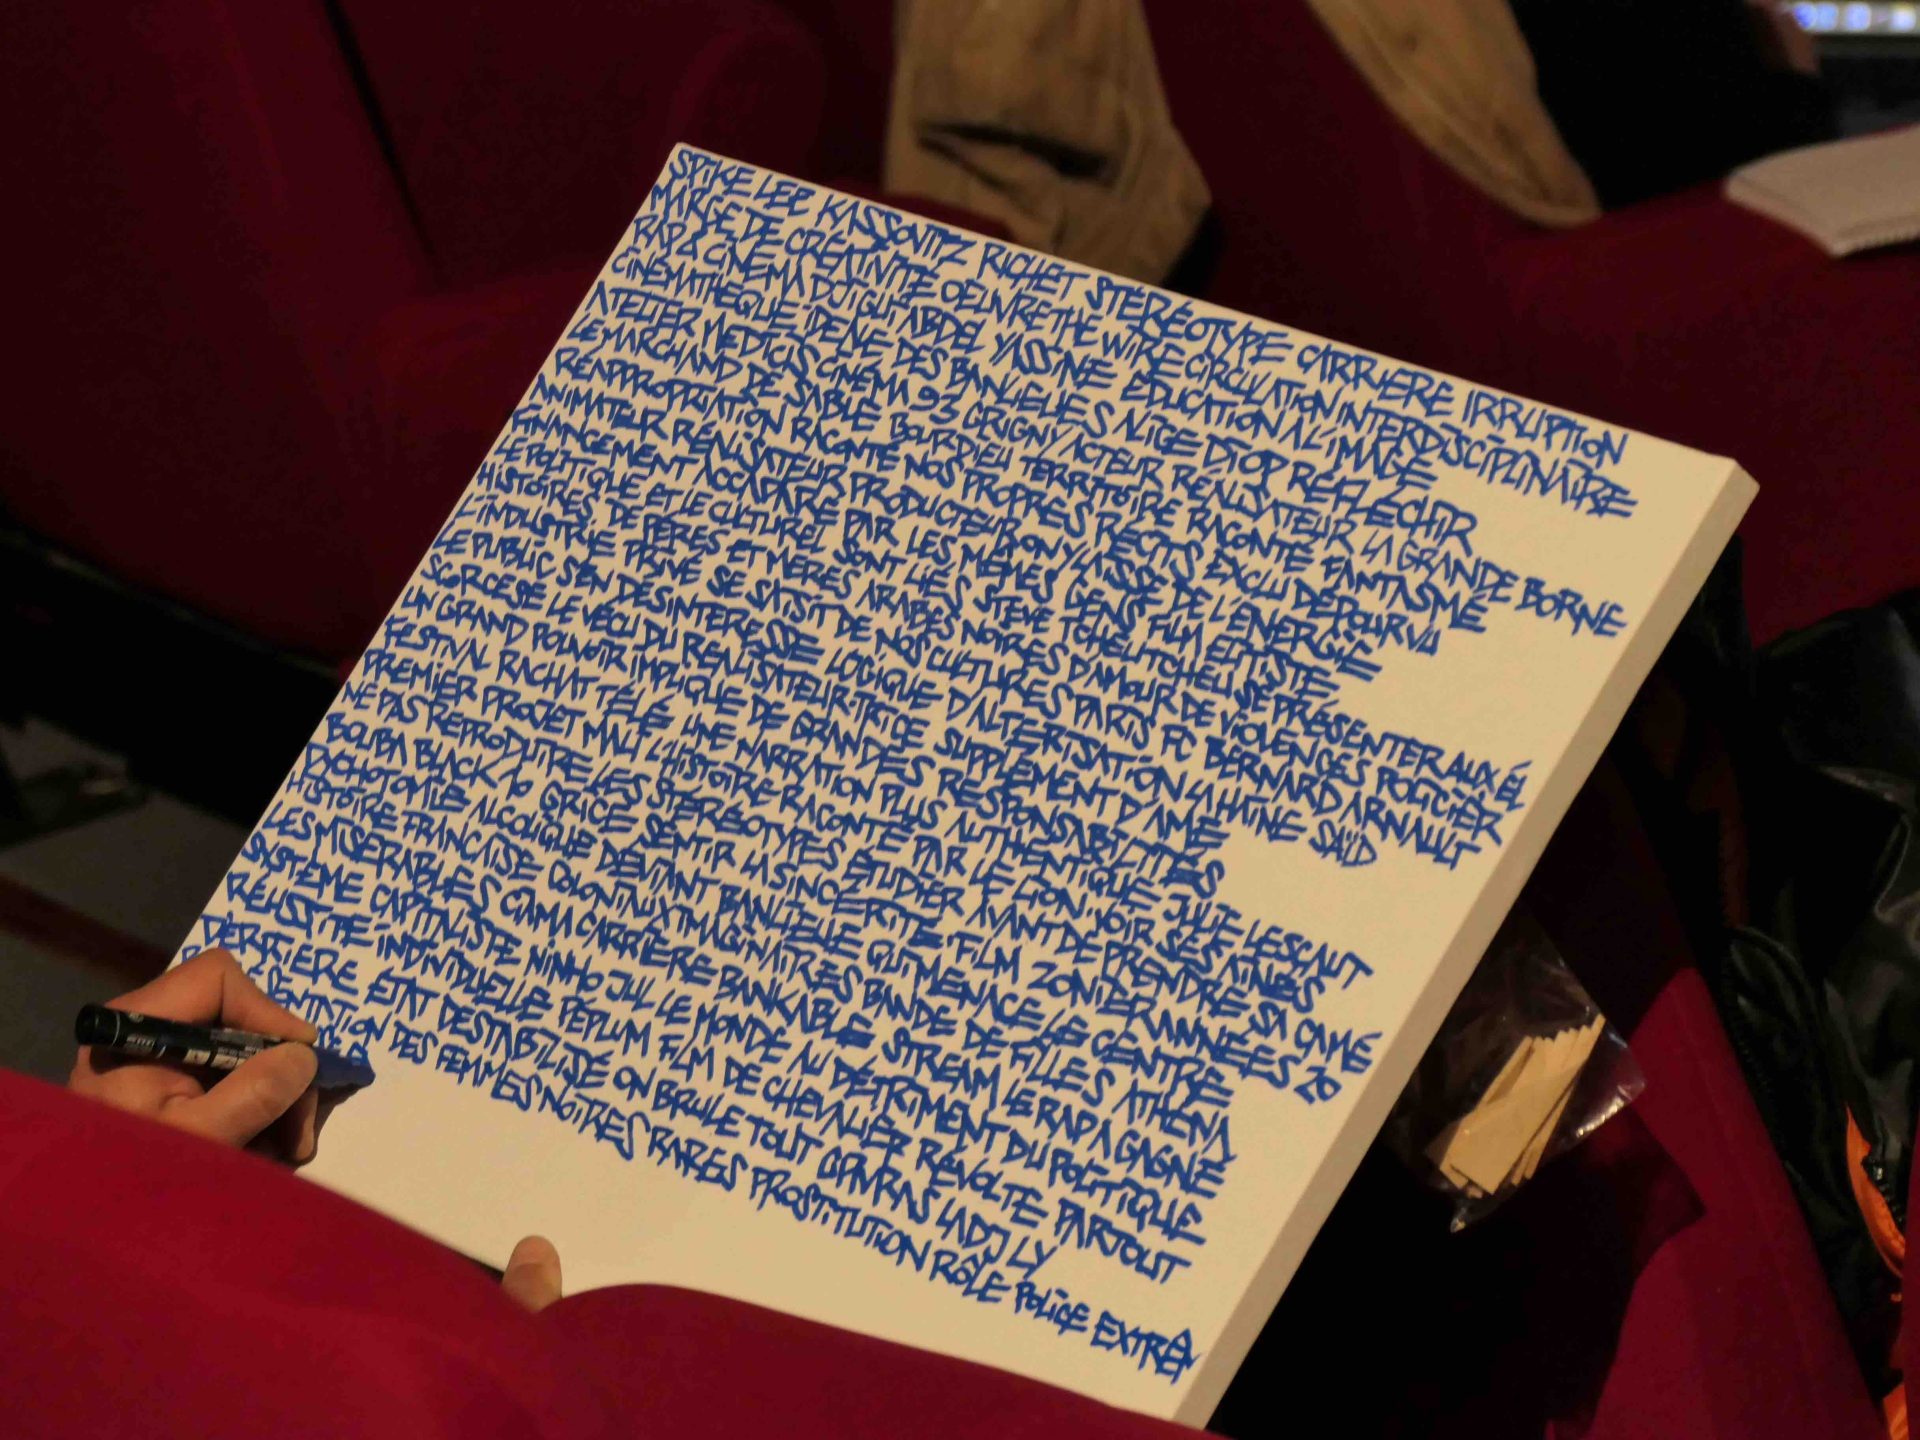 SPIKE LEE KASSOVITZ RICHET STÉRÉOTYPE CARRIÈRE IRRUPTION
MARGE DE CRÉATIVITÉ OEUVRE THE WIRE CIRCULATION INTERDISCIPLINAIRE
RAP & CINÉMA DJIGUI ABDEL YASSINE ÉDUCATION À L'IMAGE
CINÉMATHÈQUE DES BANLIEUES ALICE DIOP RÉFLÉCHIR
ATELIER MÉDICIS CINÉMA 93 GRIGNY ACTEUR RÉALISATEUR LA GRANDE BORNE
LE MARCHAND DE SABLE BOURDIEU TERRITOIRE RACONTÉ FANTASMÉ
RÉAPPROPRIATION RACONTÉ NOS PROPRES RÉCITS EXCLU DÉPOURVU
ANIMATEUR RÉALISATEUR PRODUCTEUR DE L'ÉNERGIE
FINANCEMENT ACCAPARÉ PAR LES MÊMES GENS FILM ÉLITISTE
LE POLITIQUE ET LE CULTUREL SONT LIÉS STEVE TCHEUTCHEU SE PRÉSENTER AUX ÉL
HISTOIRES DE PÈRES ET MÈRES ARABES NOIRES D'AMOUR DE VIOLENCES POLICIÈR
L'INDUSTRIE PRIVÉ SE SAISIT DE NOS CULTURES PARIS FC BERNARD ARNAULT
LE PUBLIC S'EN DÉSINTERESSE LOGIQUE D'ALTÉRISATION LA HAINE SAÏD
SCORCESE LE VÉCU DU RÉALISATEUR·TRICE SUPPLÉMENT D'ÂME
UN GRAND POUVOIR IMPLIQUE DE GRANDES RESPONSABILITÉS
FESTIVAL RACHAT TÉLÉ UNE NARRATION PLUS AUTHENTIQUE JULIE LESCAUT
PREMIER PROJET MALI L'HISTOIRE RACONTÉ PAR LE LION VOIR SES AINÉS
NE PAS REPRODUIRE LES STÉRÉOTYPES ÉTUDIER AVANT DE PRENDRE SA CAMÉ
BOUBA BLACK SENTIR LA SINCÉRITÉ FILM ZONIER ANNÉES 20
DYCHOTOMIE ALCOLIQUE DÉVIANT BANLIEUE QUI MENACE LE CENTRE
HISTOIRE FRANÇAISE COLONIAUX IMAGINAIRES BANDE DE FILLES ATHENA
LES MISÉRABLES CARRIÈRE BANKABLE STREAM LE RAP A GAGNÉ
SYSTÈME CAPITALISTE NINHO JUL LE MONDE AU DÉTRIMENT DU POLITIQUE
RÉUSSITE INDIVIDUELLE PÉPLUM FILM DE CHEVALIER RÉVOLTE PARTOUT
DERRIÈRE ÉTAT DESTABILISÉ ON BRULE TOUT GAVRAS LADJ LY
DES FEMMES NOIRES RARES PROSTITUTION RÔLE POLICE EXTRÊM